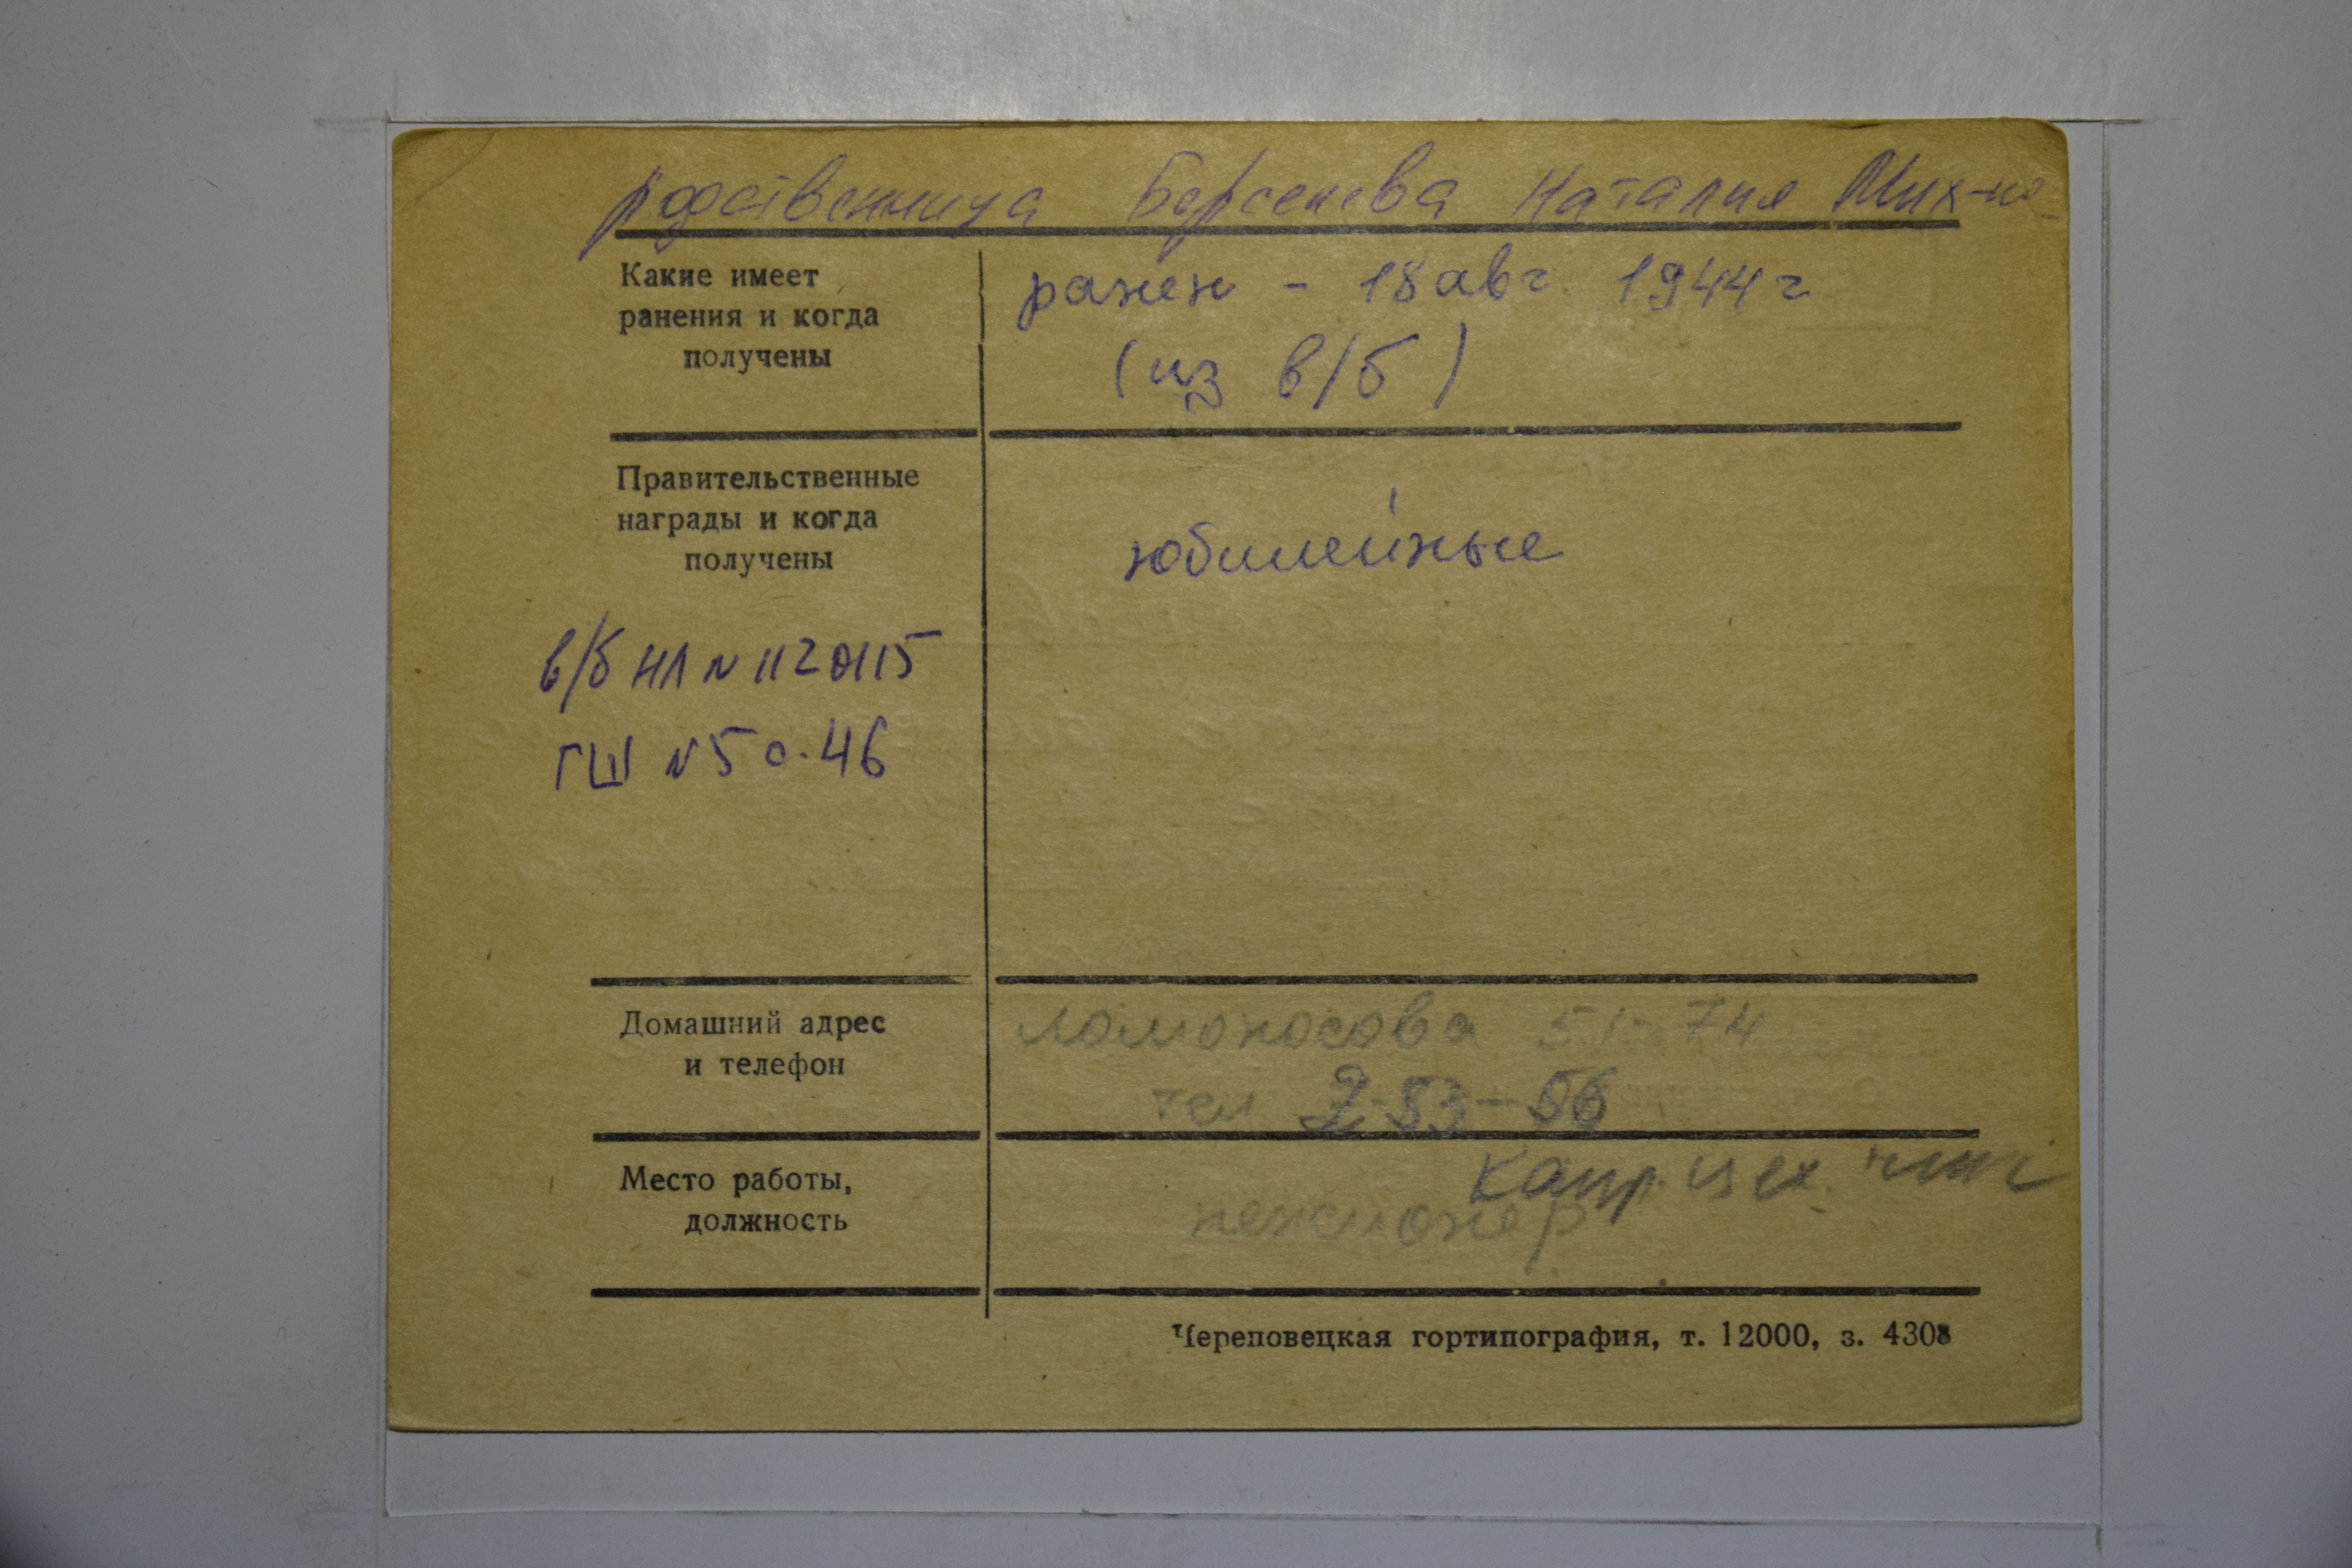 родственница Берсенева Наталия Мих-на
Какие имеет
ранения и когда
получены
ранен - 18 авг. 1944 г
(из в/б)
Правительственные
награды и когда
получены
юбилейные
в/б НЛ N 1120115
ГШ N 5 с. 46
Домашний адрес
и телефон
Ломоносова 51-74
тел 2-53-56
Место работы,
должность
пенсионер
Череповецкая гортипография, т. 12000, з. 4308